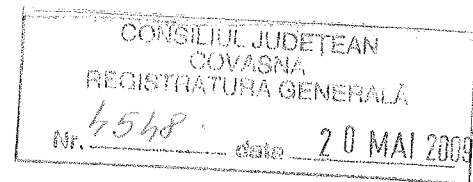 CONSILIUL JUDEȚEAN
COVASNA
REGISTRATURA GENERALĂ
Nr. 4548. data 20 MAI 2009